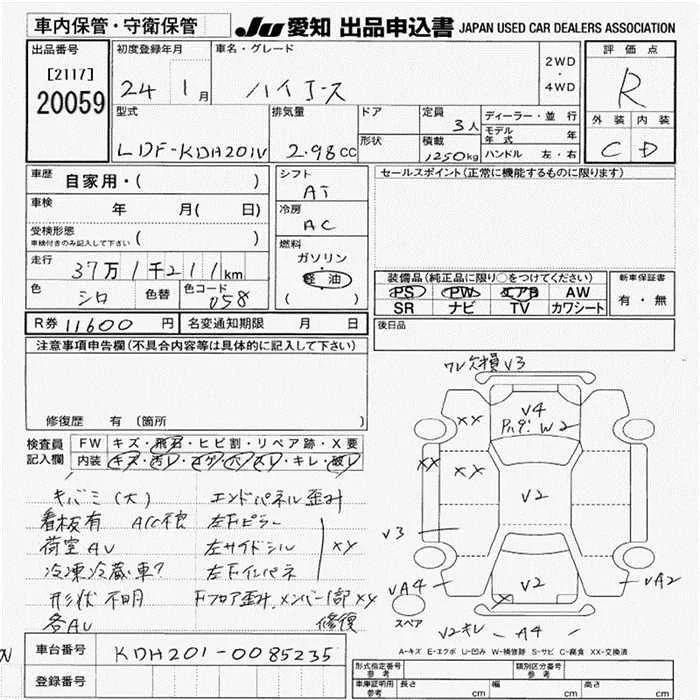 車内保管・守衛保管 JU 愛知 出品申込書 JAPAN USED CAR DEALERS ASSOCIATION
出品番号 初度登録年月 車名・グレード 評価点
[2117] 24 1月 ハイエース 2WD・4WD R
20059
型式 排気量 ドア 定員 3人 ディーラー・並行 外装 内装
モデル年式 年
LDF-KDH201V 2.98cc 形状 積載 1250kg ハンドル 左・右 C D
車歴 自家用・( ) シフト AT セールスポイント(正常に機能するものに限ります)
車検 年 月( 日) 冷房 AC
受検形態 車検付きのみ記入して下さい ( ) 燃料
ガソリン
走行 37万1千211km 軽油 装備品(純正品に限り○をつけてください) 新車保証書
( ) PS PW エアB AW 有・無
色 シロ 色替 色コード 058 SR ナビ TV カワシート
R券 11600円 名変通知期限 月 日 後日品
注意事項申告欄(不具合内容等は具体的に記入して下さい)
修復歴 有 (箇所
ワレ欠損 V3
検査員記入欄 FW キズ・飛石・ヒビ割・リペア跡・X要
内装 キズ・汚レ・コゲ・穴・スレ・キレ・破レ
キバミ(大) エンドパネル歪ミ
看板有 ACC不良 左Fピラー
荷室AV 左サイドシル XY
冷凍冷蔵車? 左Fインパネ
形状不明 Fフロア歪ミ、メンバー1部XY
各AV 修復
XX V4
W2
XX XX
V2
V3
VA4 V2 VA2
X
スペア
V2キレ A4
A-キズ E-エクボ U-凹み W-補修跡 S-サビ C-腐食 XX-交換済
車台番号 KDH201-0085235
登録番号
形式指定番号 参考 類別区分番号 参考
車庫証明用 参考 長さ cm 幅 cm 高さ cm